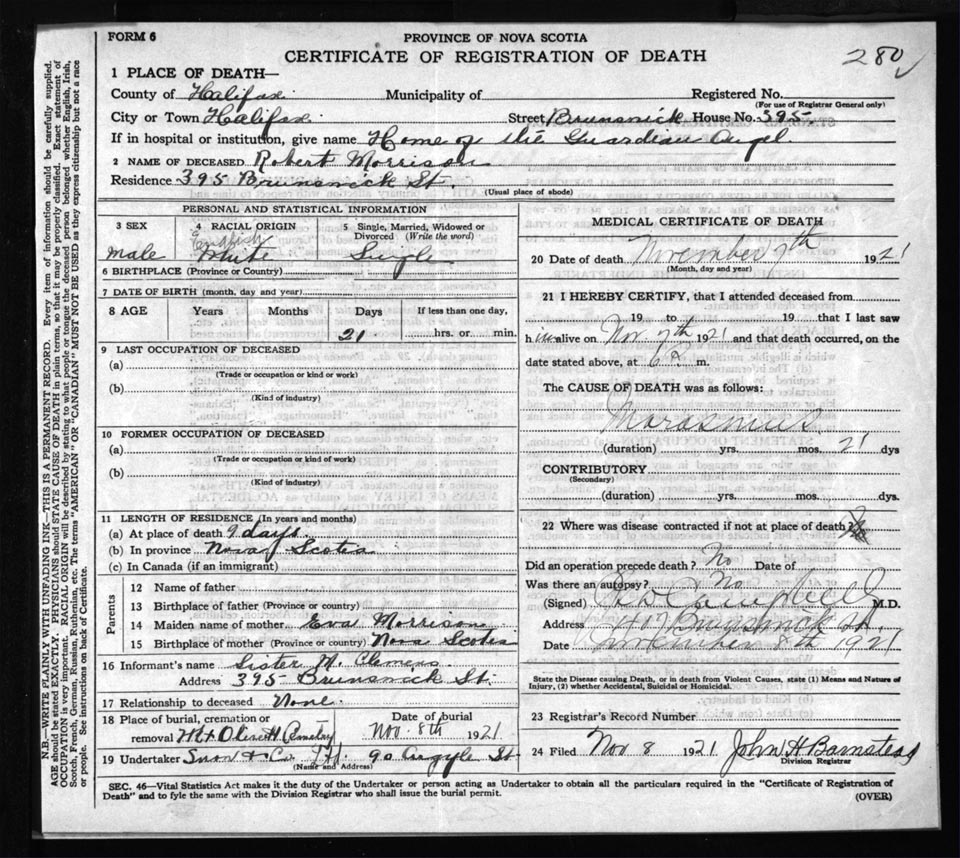 FORM 6
PROVINCE OF NOVA SCOTIA
CERTIFICATE OF REGISTRATION OF DEATH
280
1 PLACE OF DEATH—
County of Halifax Municipality of Registered No.
(For use of Registrar General only)
City or Town Halifax Street Brunsnick House No. 395
If in hospital or institution, give name Home of the Guardian Angel.
2 NAME OF DECEASED Robert Morrison
Residence 395 Brunsnick St.
(Usual place of abode)
PERSONAL AND STATISTICAL INFORMATION
3 SEX
Male
4 RACIAL ORIGIN
English
White
5 Single, Married, Widowed or
Divorced (Write the word)
Single
6 BIRTHPLACE (Province or Country)
7 DATE OF BIRTH (month, day and year)
8 AGE Years Months Days If less than one day,
21 hrs. or min.
9 LAST OCCUPATION OF DECEASED
(a)
(Trade or occupation or kind or work)
(b)
(Kind of industry)
10 FORMER OCCUPATION OF DECEASED
(a)
(Trade or occupation or kind of work)
(b)
(Kind of industry)
11 LENGTH OF RESIDENCE (In years and months)
(a) At place of death 9 days.
(b) In province Nova Scotia
(c) In Canada (if an immigrant)
Parents
12 Name of father
13 Birthplace of father (Province or country)
14 Maiden name of mother Eva Morrison
15 Birthplace of mother (Province or country) Nova Scotia
16 Informant's name Sister M. Clemens
Address 395 Brunsnick St.
17 Relationship to deceased None.
18 Place of burial, cremation or
removal Mt Olivet Cemetery
Date of burial
Nov. 8th 1921
19 Undertaker Snow & Co. Ltd 90 Argyle St
(Name and Address)
MEDICAL CERTIFICATE OF DEATH
20 Date of death November 7th 1921
(Month, day and year)
21 I HEREBY CERTIFY, that I attended deceased from
19 to 19 that I last saw
him alive on Nov 7th 1921 and that death occurred, on the
date stated above, at 6 m.
The CAUSE OF DEATH was as follows:
Marasmus
(duration) yrs. mos. 21 dys
CONTRIBUTORY
(Secondary)
(duration) yrs. mos. dys.
22 Where was disease contracted if not at place of death?
Did an operation precede death? No Date of
Was there an autopsy? No
(Signed) Campbell M.D.
Address 407 Brunsnick St.
Date November 8th 1921
State the Disease causing Death, or in death from Violent Causes, state (1) Means and Nature of
Injury, (2) whether Accidental, Suicidal or Homicidal.
23 Registrar's Record Number
24 Filed Nov 8 1921 John H Barnstead
Division Registrar
SEC. 46—Vital Statistics Act makes it the duty of the Undertaker or person acting as Undertaker to obtain all the particulars required in the "Certificate of Registration of
Death" and to fyle the same with the Division Registrar who shall issue the burial permit.
(OVER)
N.B.—WRITE PLAINLY WITH UNFADING INK—THIS IS A PERMANENT RECORD. Every item of information should be carefully supplied.
AGE should be stated EXACTLY. PHYSICIANS should STATE CAUSE OF DEATH in plain terms, so that it may be properly classified. Exact statement of
OCCUPATION is very important. RACIAL ORIGIN will be described by stating to what people or tongue the deceased person belonged whether English, Irish,
Scotch, French, German, Russian, Ruthenian, etc. The terms "AMERICAN" OR "CANADIAN" MUST NOT BE USED as they express citizenship but not a race
or people. See instructions on back of Certificate.